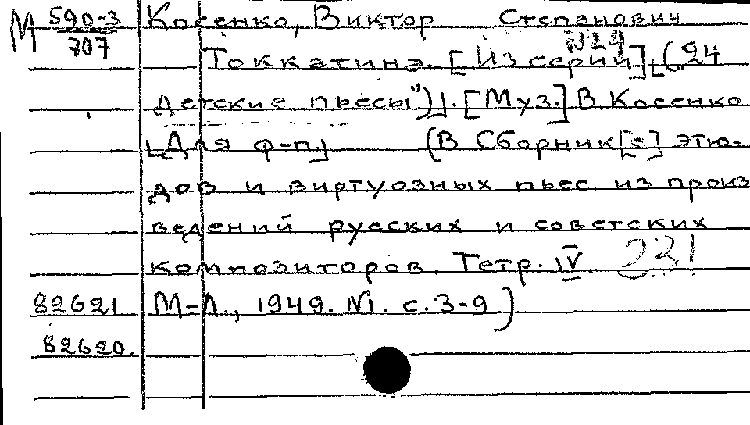 М 590-3 Косенко, Виктор Степанович
707 №29
Токкатина. [Из серий], („24
детские пьесы")]. [Муз.] В Косенко
[Для ф-п] (В Сборник[е] этю-
дов и виртуозных пьес из произ
ведений русских и советских
композиторов. Тетр. IV. 231
82621 М-Л., 1949. №1. с. 3-9)
82620.